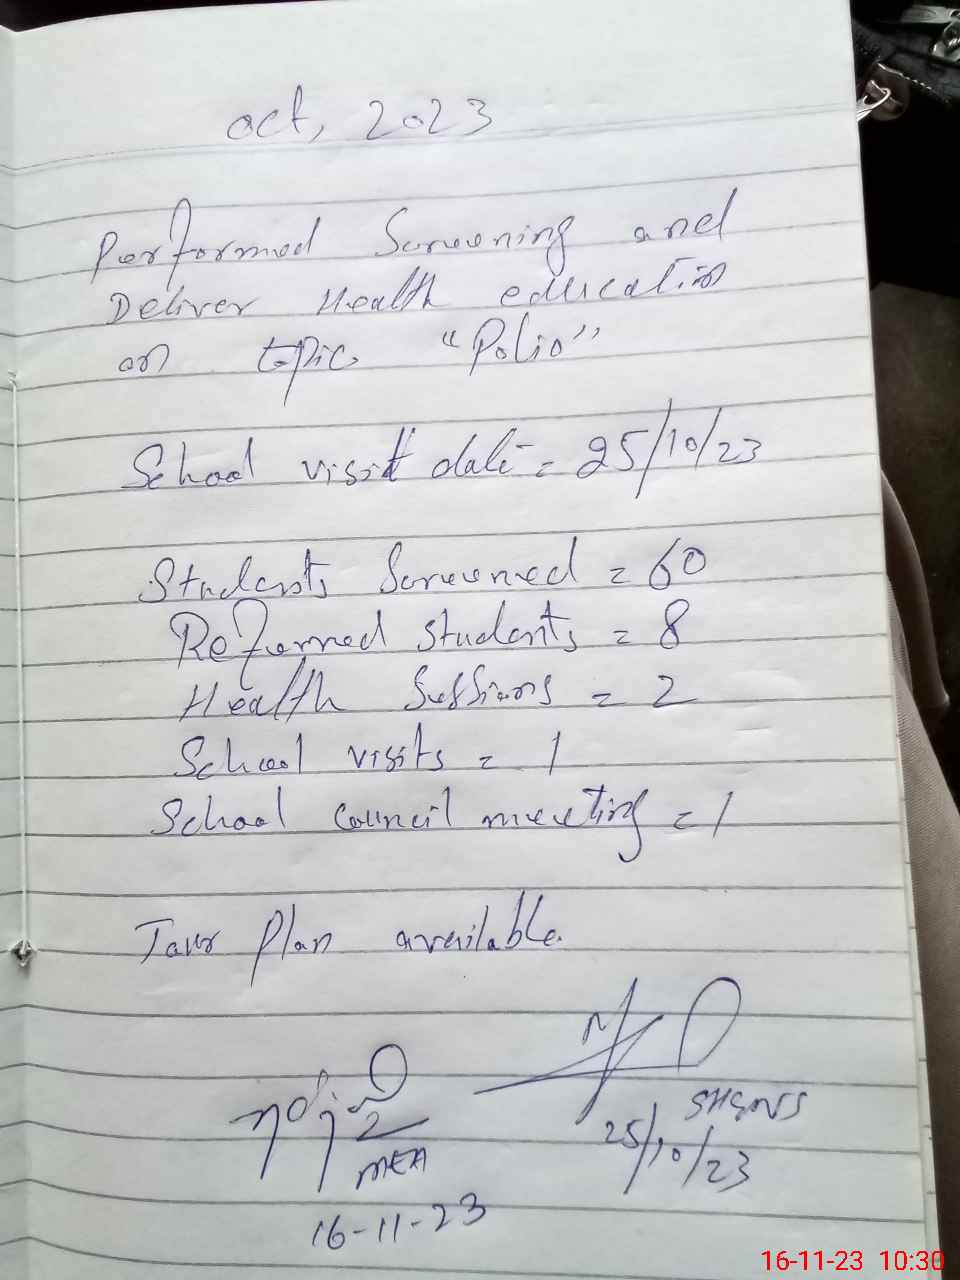 Oct, 2023
Performed Screening and
Deliver Health education
on topic "Polio"
School visit date = 25/10/23
Students Screened = 60
Referred students = 8
Health Sessions = 2
School visits = 1
School Council meeting = 1
Tour Plan available.
SH&NS
25/10/23
MEA
16-11-23
16-11-23 10:30